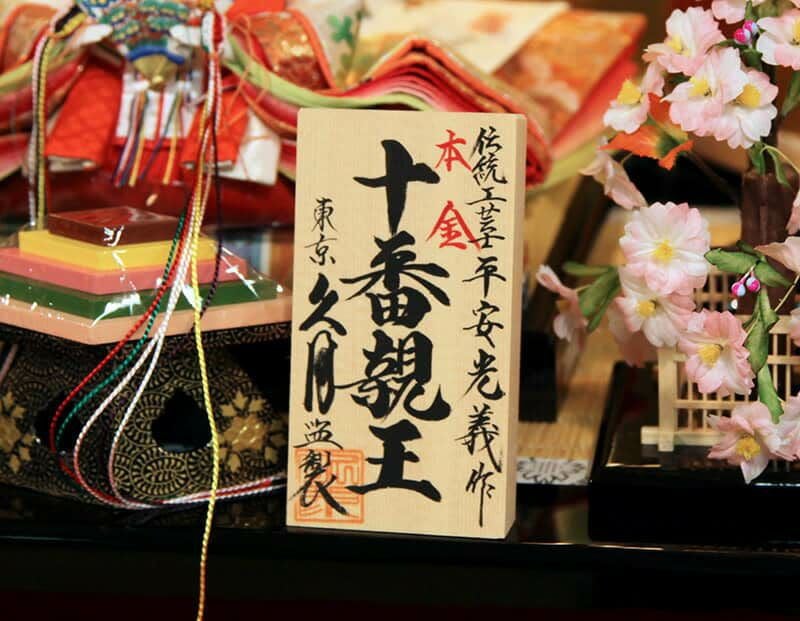 伝統工芸平安光義作
本金
十番親王
東京久月監製